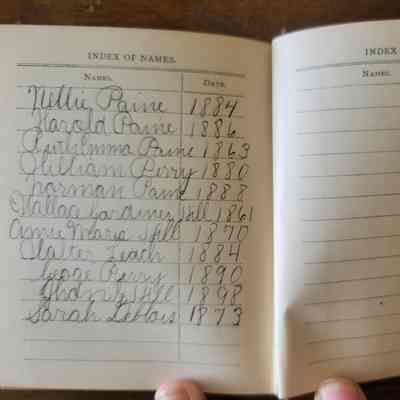 INDEX OF NAMES.
NAMES. DATE.
Nettie Paine 1884
Harold Paine 1886
Paine 1863
William Perry 1880
Norman Paine 1888
Gardiner Hill 1861
Annie Maria Hill 1870
Walter Leach 1884
Perry 1890
Hill 1898
Sarah Deblois 1873
INDEX
NAMES.